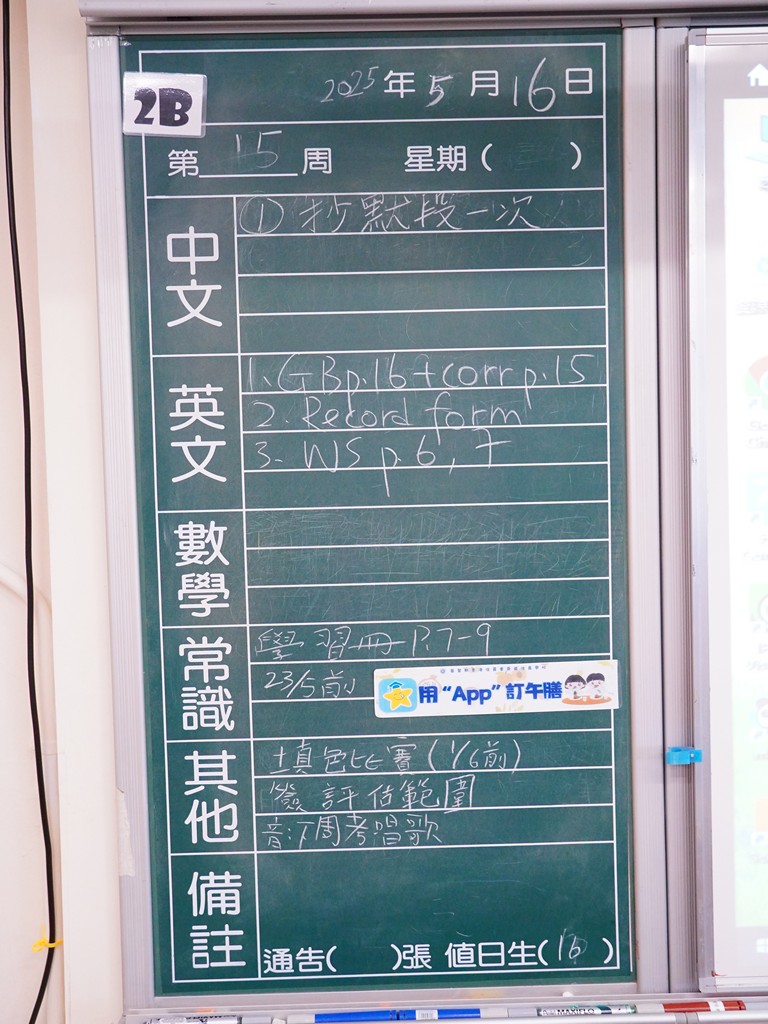 2B
2025年5月16日
第15周 星期( )
中文
① 抄默段一次
英文
1. GB p.16 + corr p.15
2. Record form
3. WS p.6, 7
數學
常識
學習冊 P.7-9
23/5前
用“App”訂午膳
其他
填色比賽(1/6前)
簽評估範圍
音:下周考唱歌
備註
通告( )張 值日生(16)